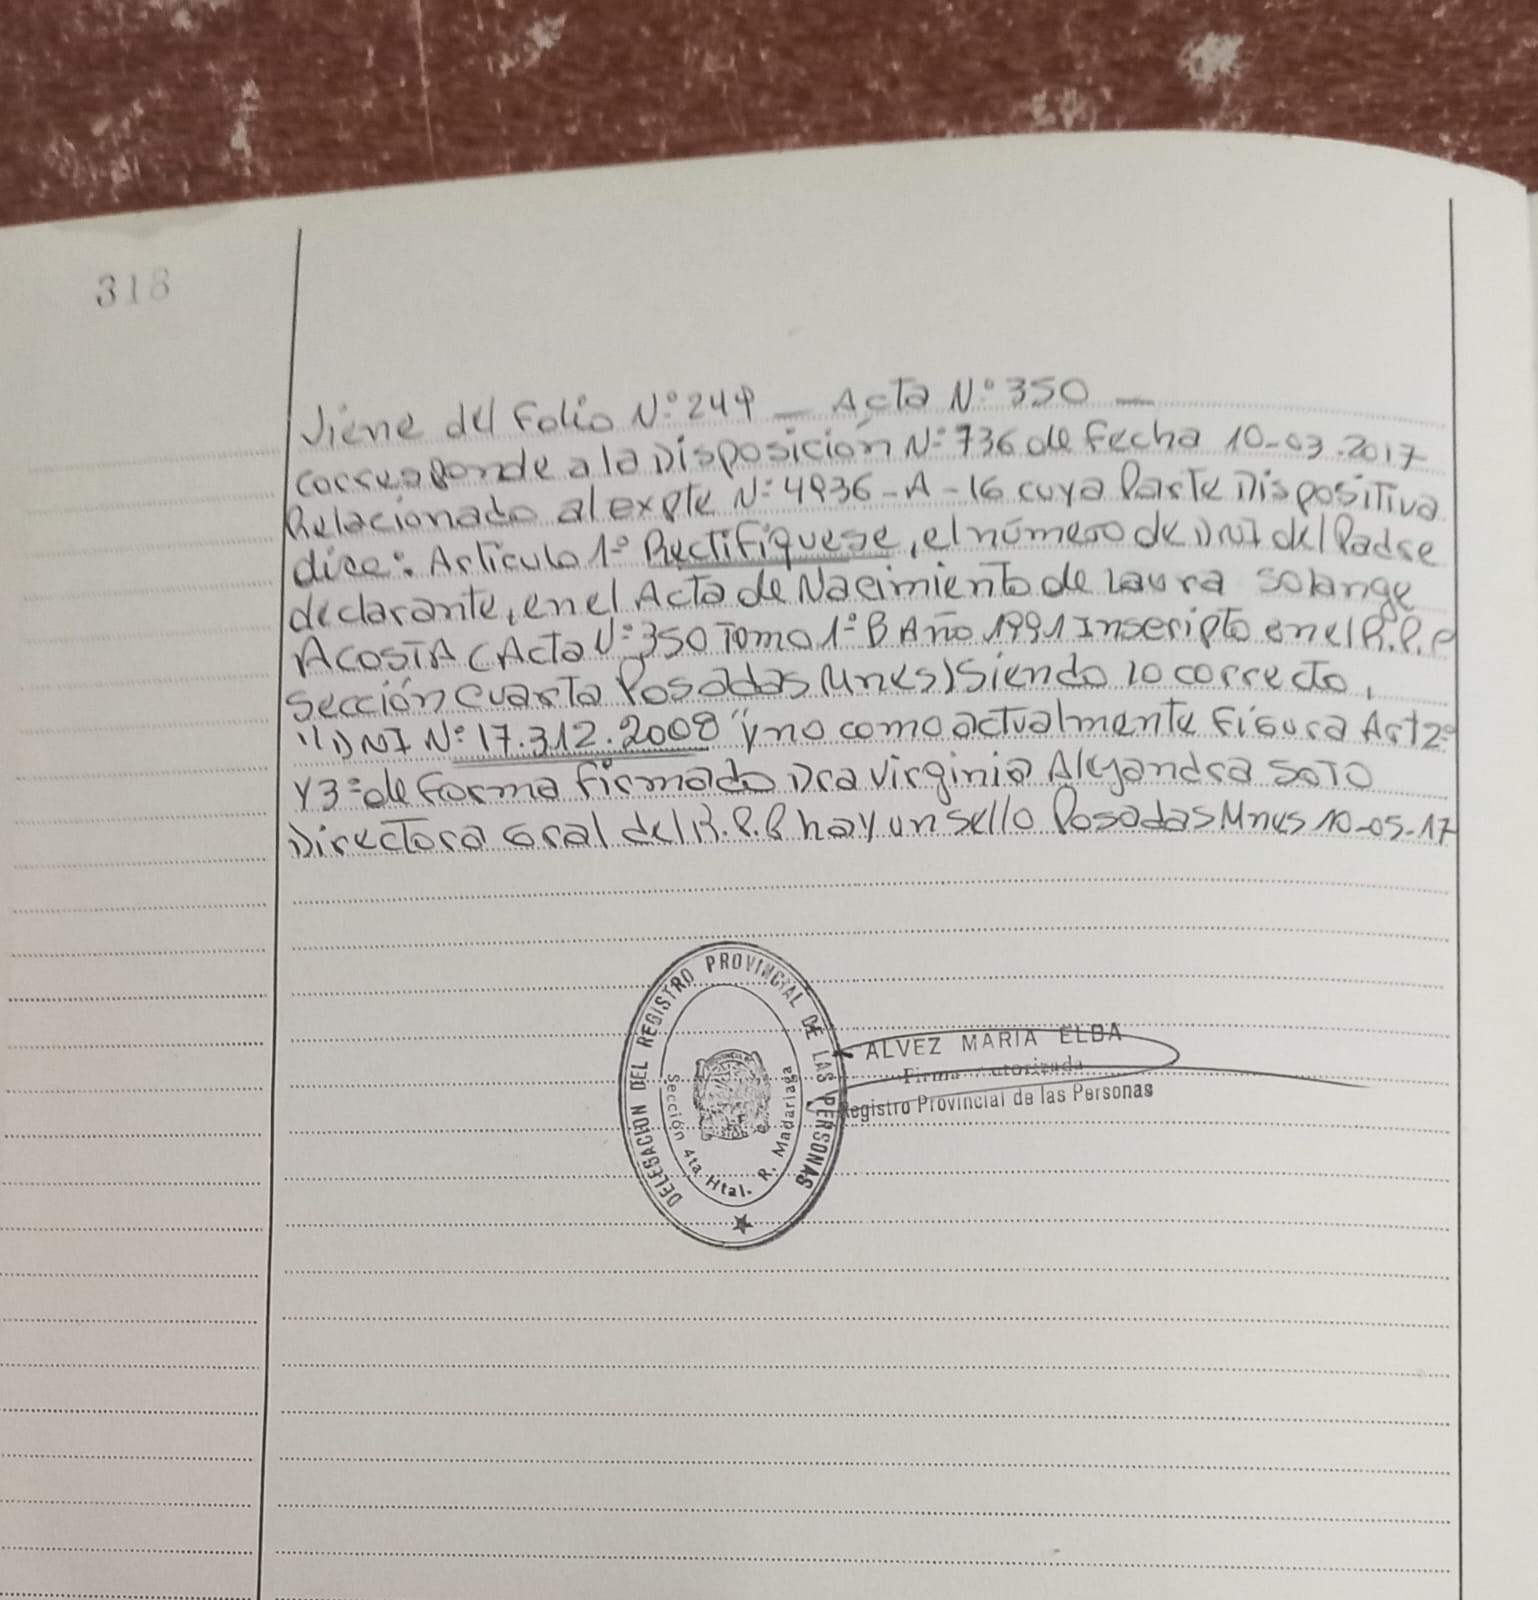 318
Viene del Folio N:° 244 — Acta N:° 350 —
corresponde a la Disposición N:° 736 de Fecha 10-03-2017
Relacionado al expte N:° 4936-A-16 cuya Parte Dispositiva
dice: Articulo 1° Rectifiquese, el número de DNI del Padre
declarante, en el Acta de Nacimiento de Laura Solange
ACOSTA (Acta N:° 350 Tomo 1° B Año 1991 Inscripto en el R.P.P
Sección Cuarta Posadas Mnes) Siendo lo correcto,
"DNI N:° 17.312.2008" y no como actualmente Figura Art 2°
Y 3° de Forma Firmado Dra Virginia Alejandra SOTO
Directora Gral del R.P.P hay un sello Posadas Mnes 10-05-17
DELEGACION DEL REGISTRO PROVINCIAL DE LAS PERSONAS
Sección 4ta. Htal. R. Madariaga
ALVEZ MARIA ELBA
Firma Autorizada
Registro Provincial de las Personas